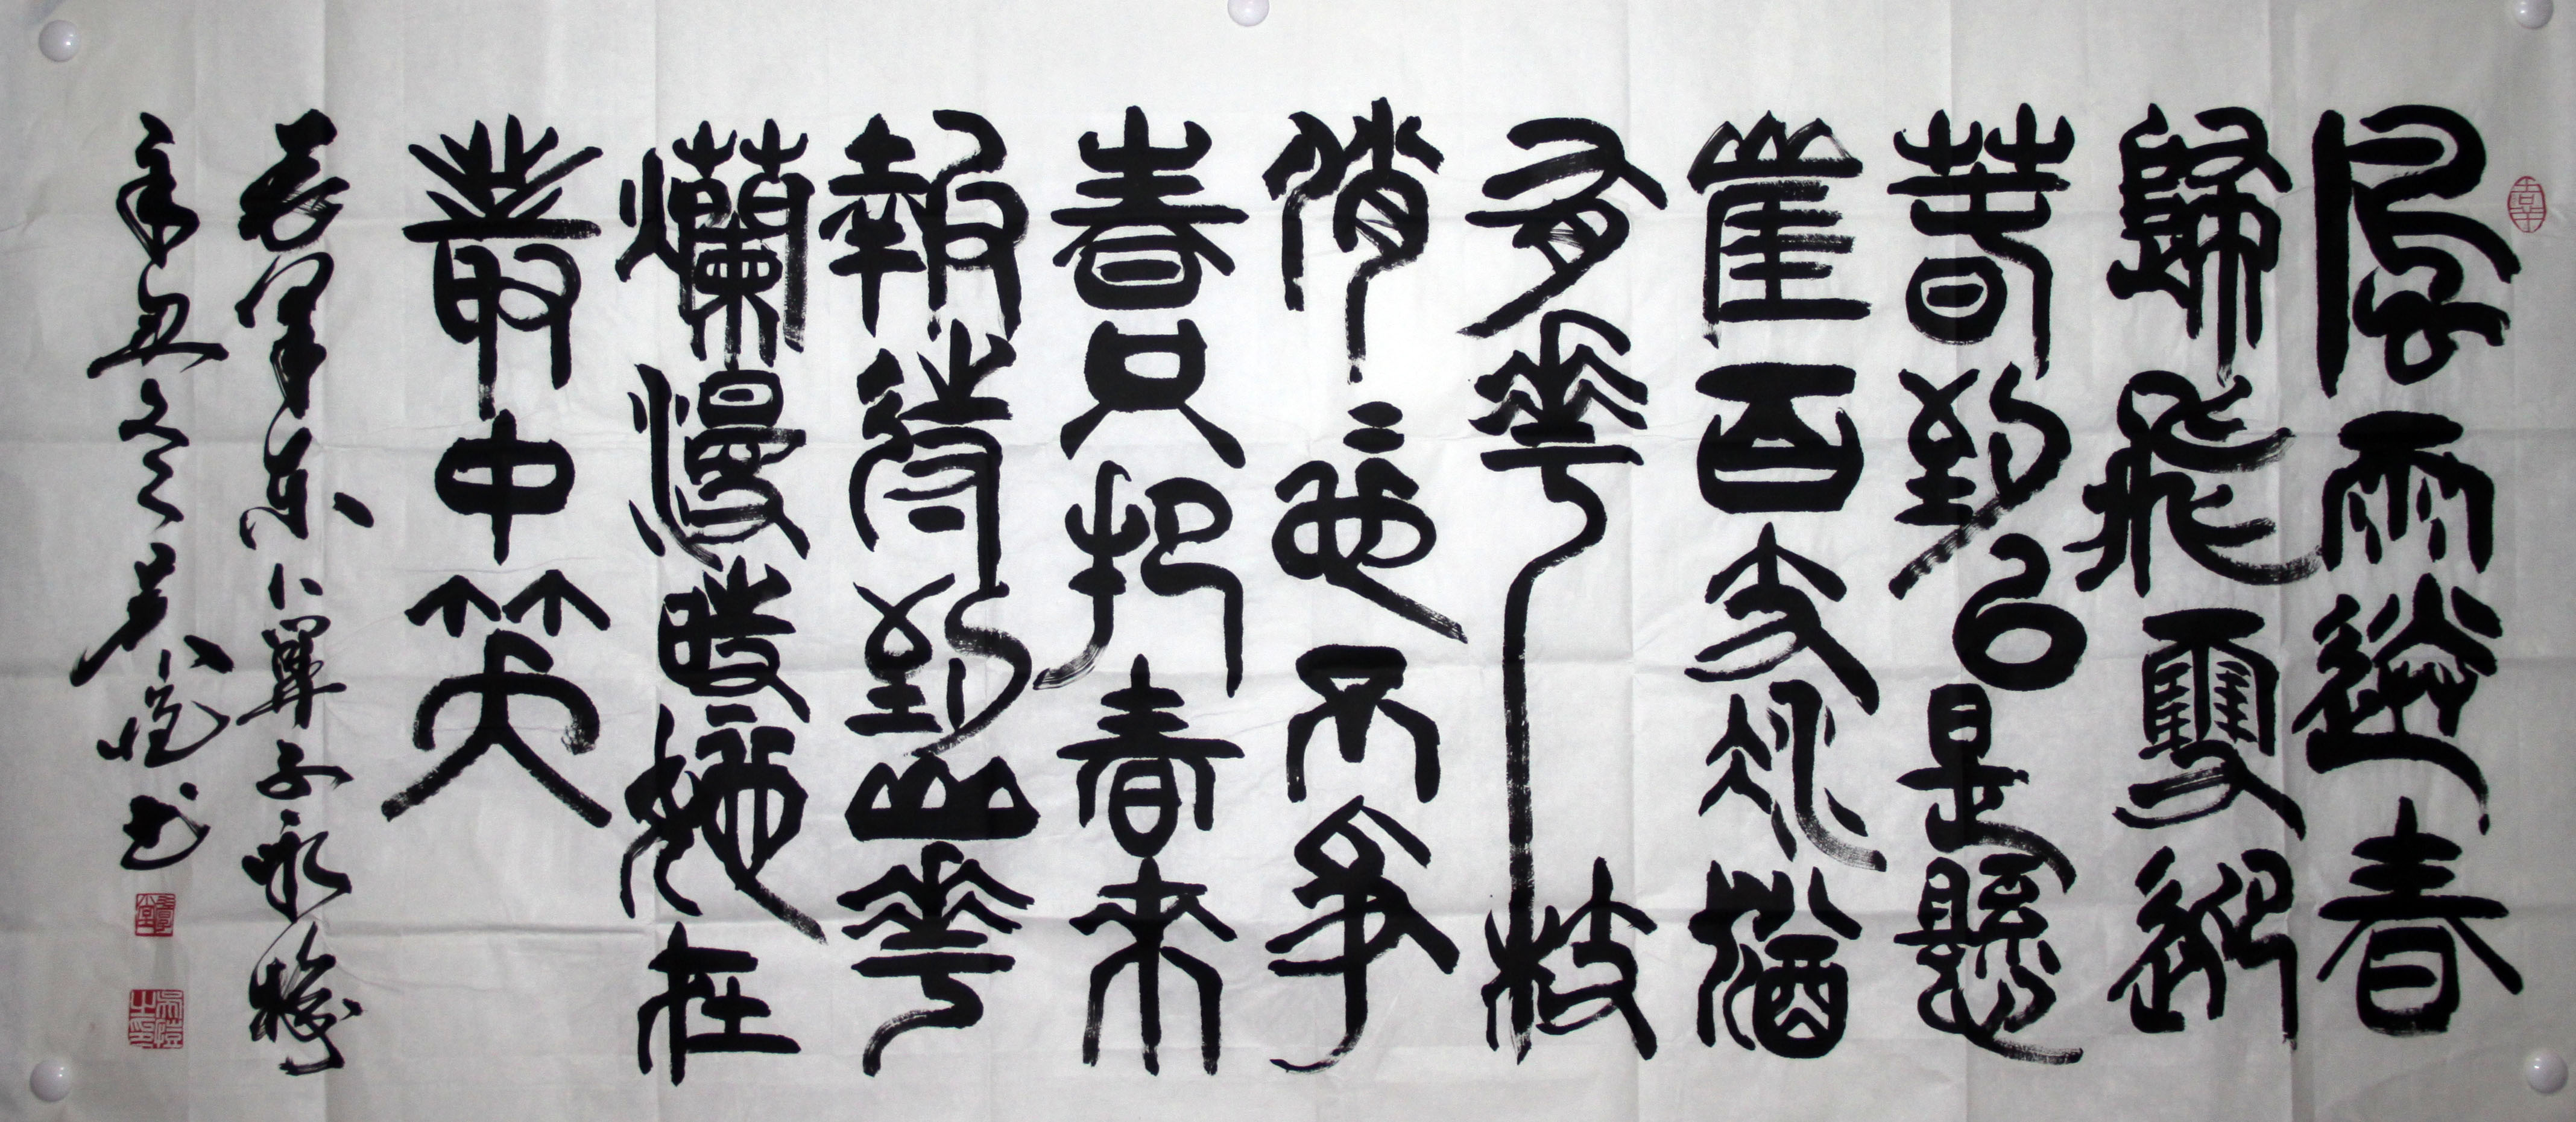 風雨送春
歸飛雪迎
春到已是懸
崖百丈冰猶
有花枝
俏〻也不爭
春只把春來
報待到山花
爛漫時她在
叢中笑
毛澤东卜算子詠梅
辛丑冬吴愷书
吳愷之印